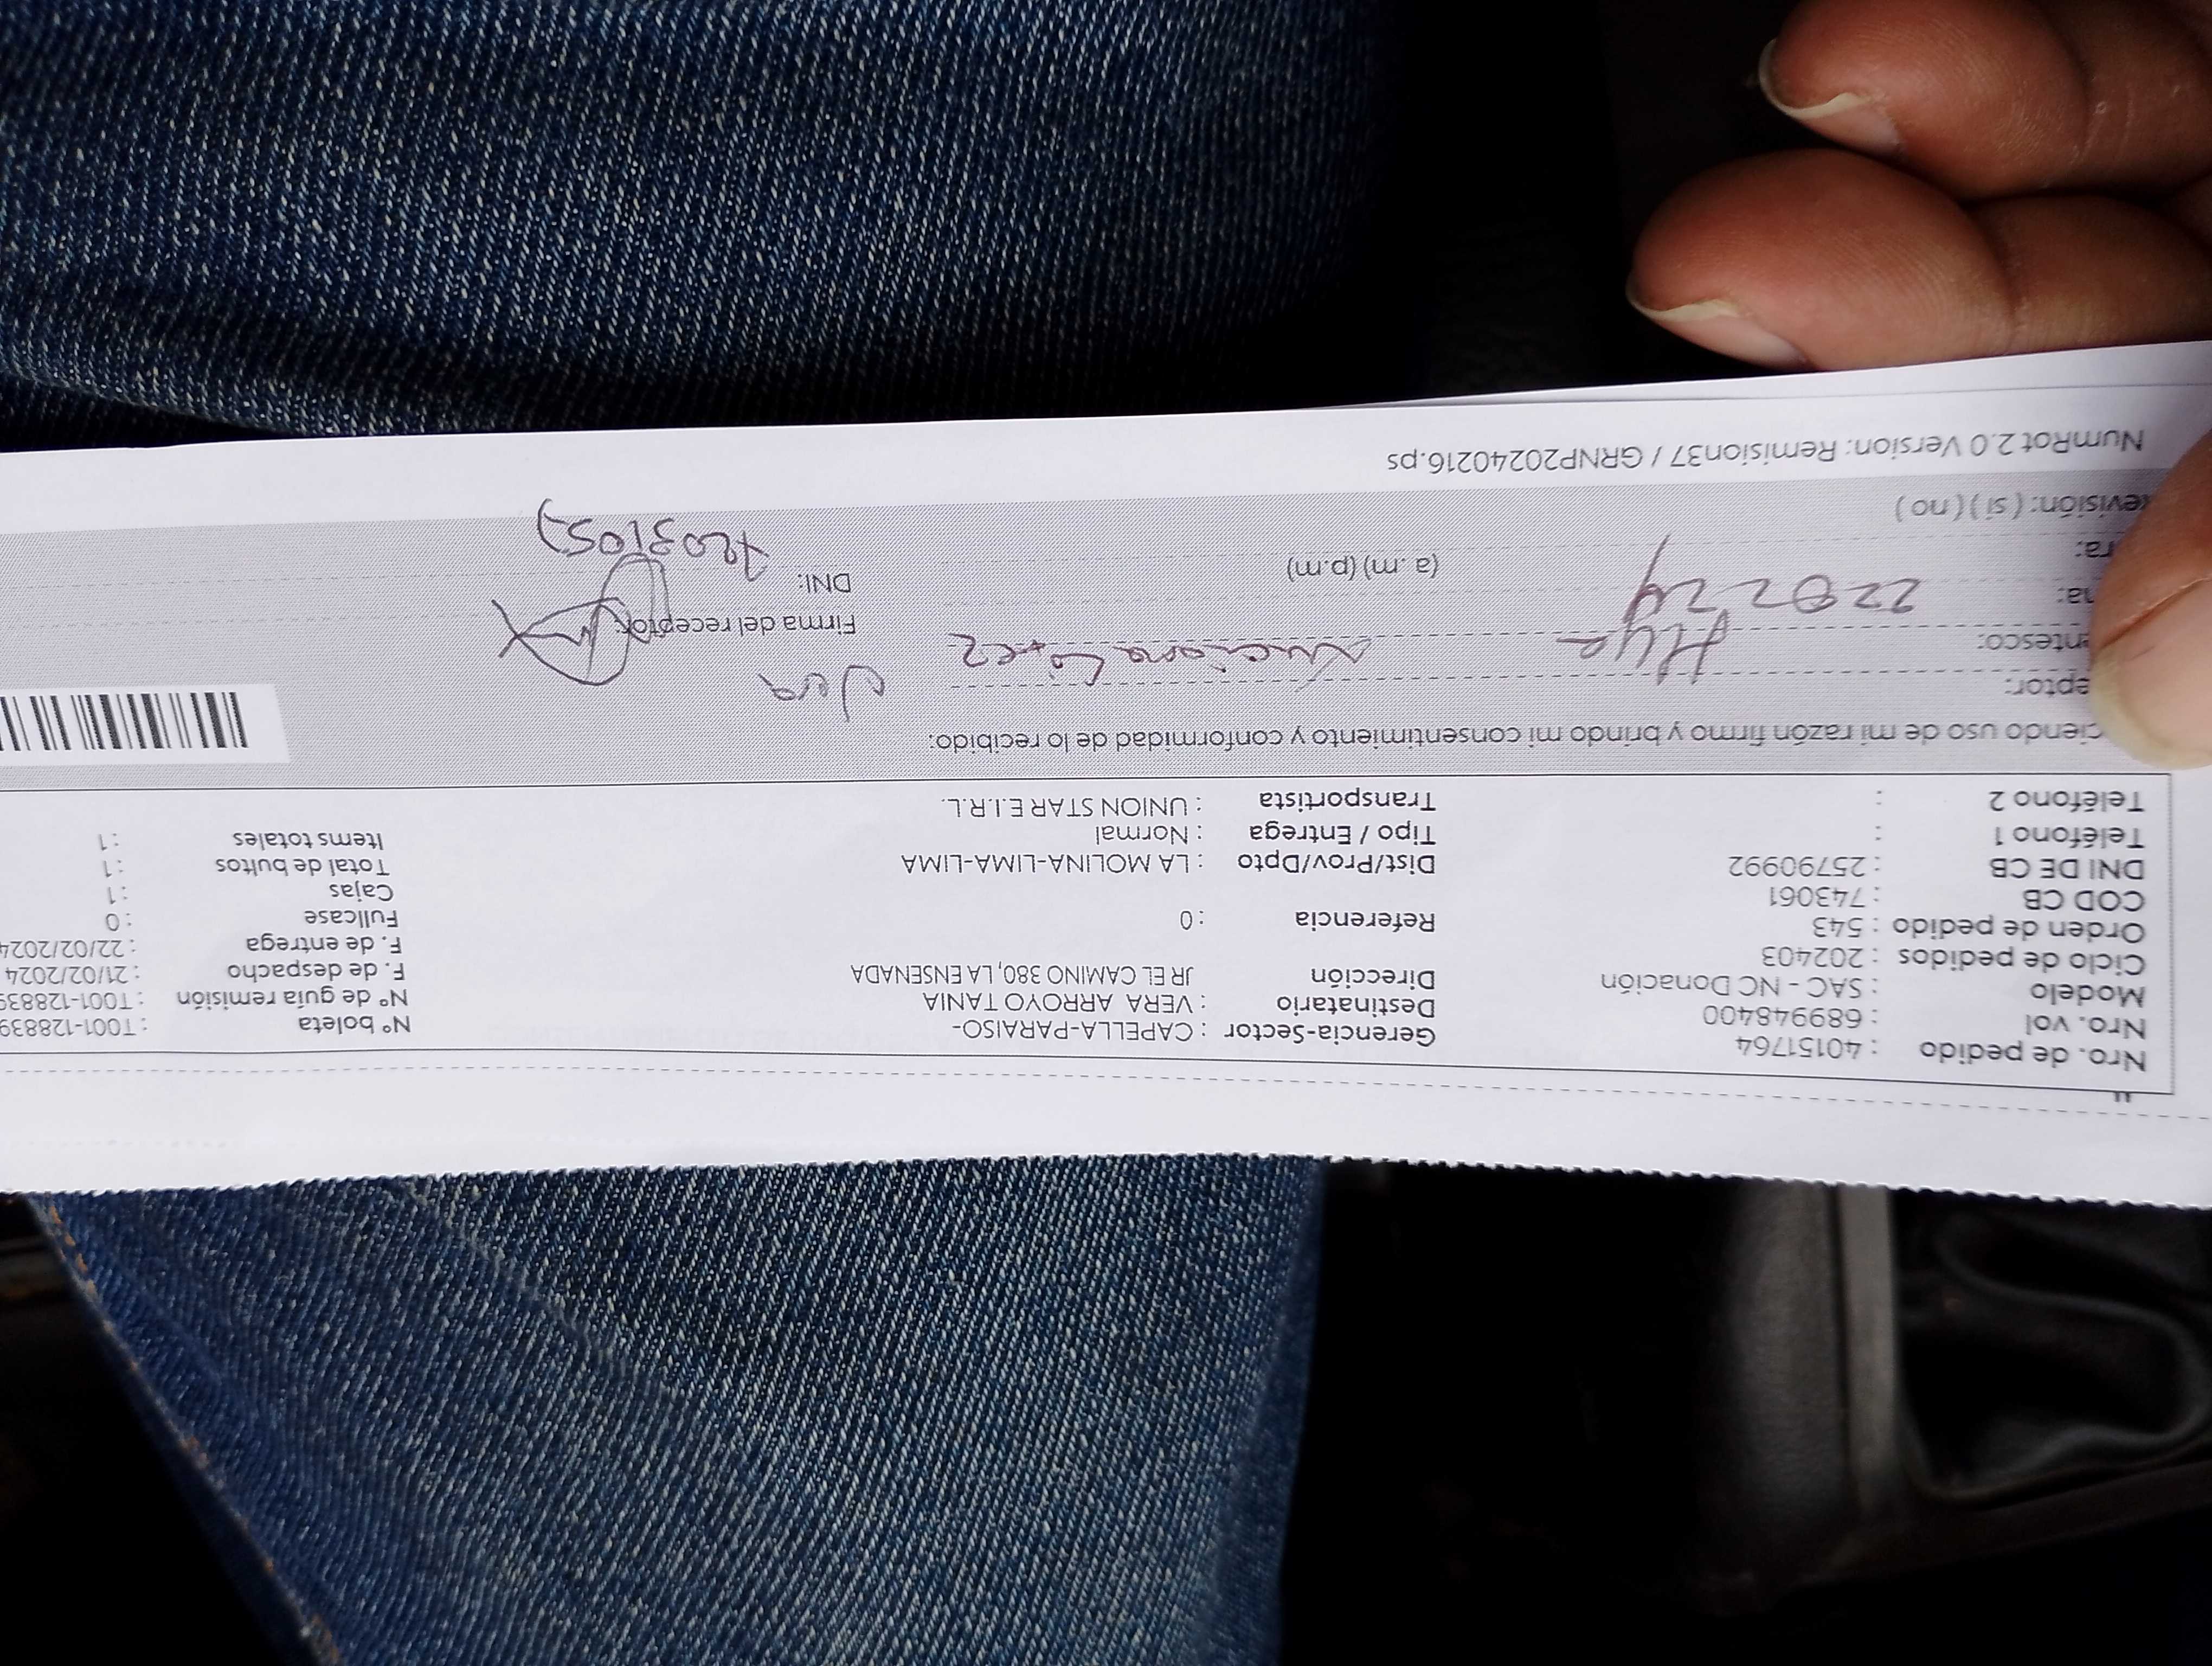 Nro. de pedido : 40151764
Nro. vol : 689948400
Modelo : SAC - NC Donación
Ciclo de pedidos : 202403
Orden de pedido : 543
COD CB : 743061
DNI DE CB : 25790992
Teléfono 1 :
Teléfono 2 :
Gerencia-Sector : CAPELLA-PARAISO-
Destinatario : VERA ARROYO TANIA
Dirección JR EL CAMINO 380, LA ENSENADA
Referencia : 0
Dist/Prov/Dpto : LA MOLINA-LIMA-LIMA
Tipo / Entrega : Normal
Transportista : UNION STAR E.I.R.L.
N° boleta : T001-128839
N° de guía remisión : T001-128839
F. de despacho : 21/02/2024
F. de entrega : 22/02/2024
Fullcase : 0
Cajas : 1
Total de bultos : 1
Items totales : 1
ciendo uso de mi razón firmo y brindo mi consentimiento y conformidad de lo recibido:
eptor: Luciana López Vera
entesco: Hija
ha: 220224
ra: (a.m) (p.m)
evisión: ( si ) ( no )
Firma del receptor:
DNI:
NumRot 2.0 Version: Remision37 / GRNP20240216.ps